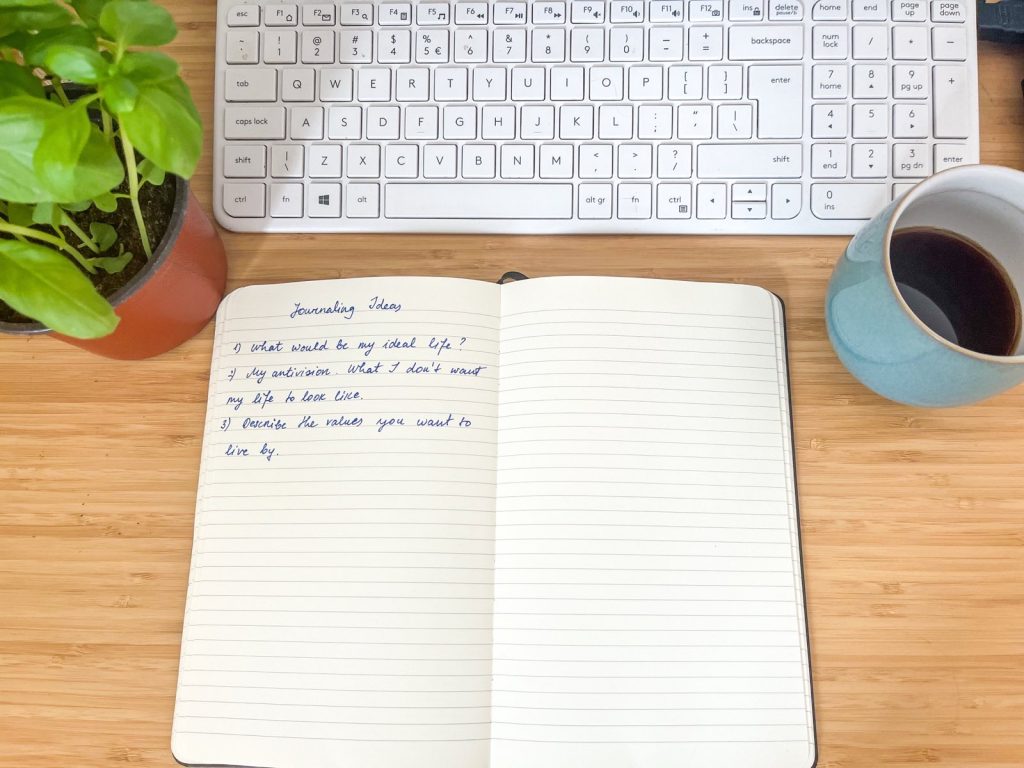 esc F1 F2 F3 F4 F5 F6 F7 F8 F9 F10 F11 F12 ins delete home end page up page down
pause/b
~ ! @ # $ % ^ & * ( ) _ + backspace num lock / * -
` 1 2 3 4 5 € 6 7 8 9 0 - =
tab Q W E R T Y U I O P { } enter 7 8 9 +
[ ] home pg up
caps lock A S D F G H J K L : " | 4 5 6
; ' \
shift | Z X C V B N M < > ? shift 1 2 3 enter
\ , . / end pg dn
ctrl fn alt alt gr fn ctrl 0
ins
Journaling Ideas
1) What would be my ideal life ?
2) My antivision. What I don't want
my life to look like.
3) Describe the values you want to
live by.